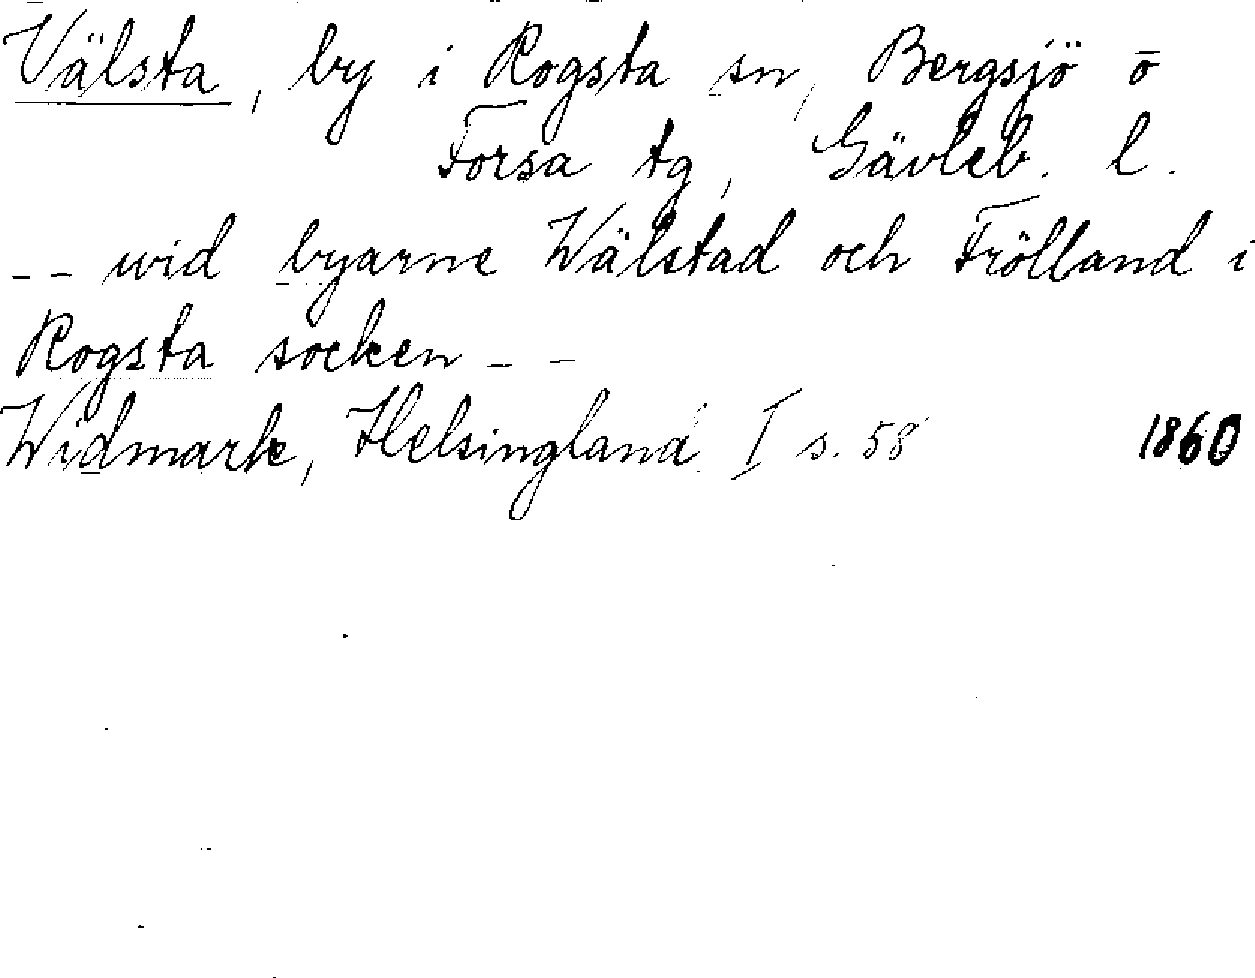 Välsta, by i Rogsta sn, Bergsjö o
Forsa tg, Gävleb. l.
-- wid byarne Wälstad och Frölland i
Rogsta socken --
Widmark, Helsingland I s. 58 1860